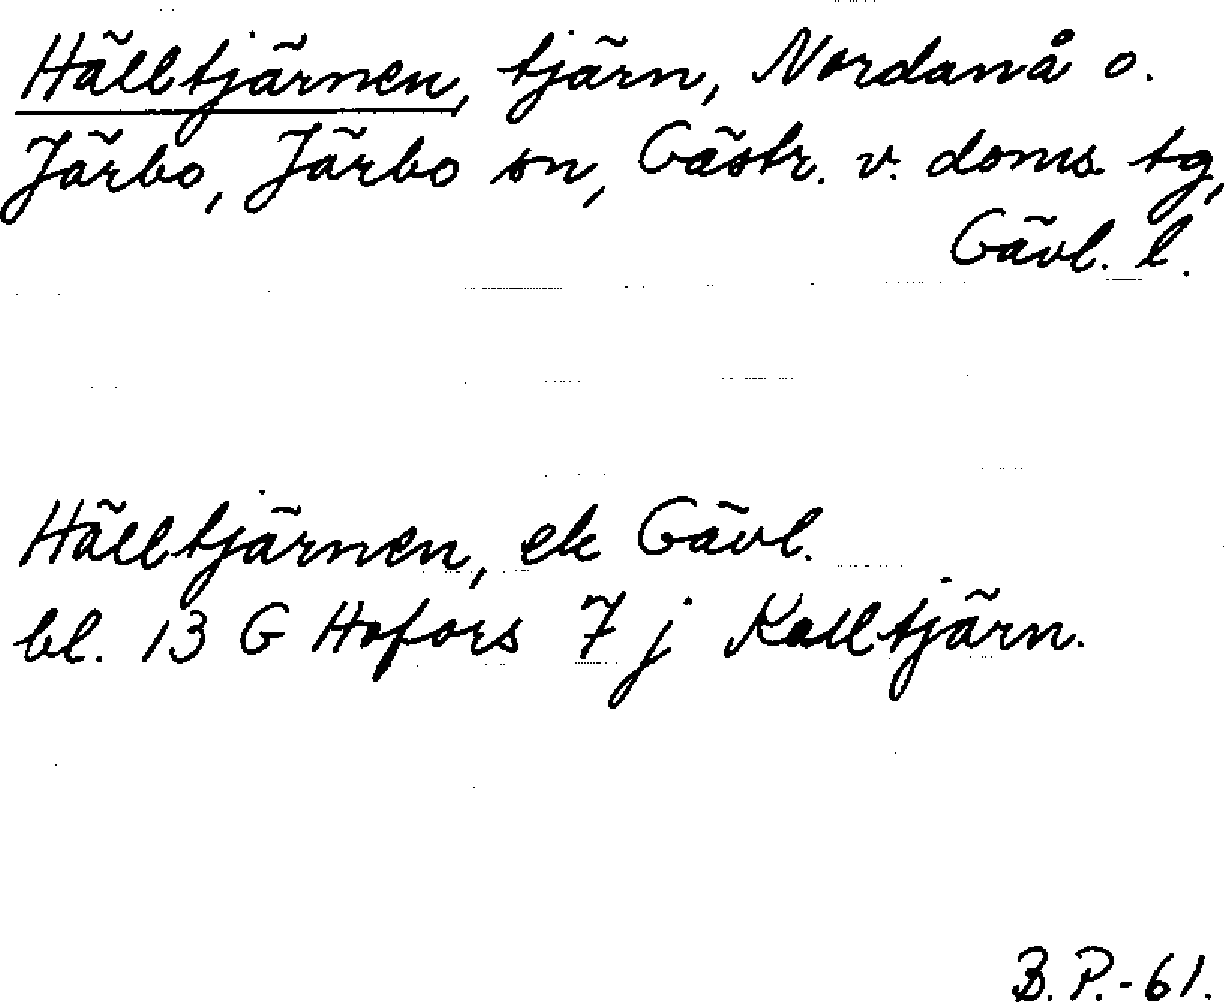 Hälltjärnen, tjärn, Nordanå o.
Järbo, Järbo sn, Gästr. v. doms. tg,
Gävl. l.
Hälltjärnen, ek Gävl.
bl. 13 G Hofors 7 j Kalltjärn.
B. P.-61.